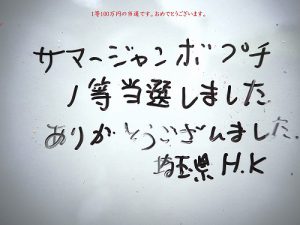 1等100万円の当選です。おめでとうございます。
サマージャンボプチ
1等当選しました
ありがとうございました
埼玉県 H.K